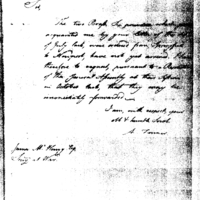 Sir
The two Brass Six pounders which you
acquainted me by your letter of the
of July last, was ordered from Springfield
to Newport have not yet
therefore to request, pursuant to a Resolution
of the General Assembly at their Session
in October last, that they may be
immediately forwarded
I am, with respect, your
Obt & humble Servt
A. Fenner
James McHenry Esq
Secy at War